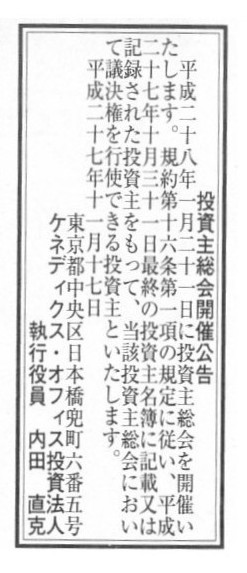 投資主総会開催公告
平成二十八年一月二十一日に投資主総会を開催い
たします。規約第十六条第一項の規定に従い、平成
二十七年十月三十一日最終の投資主名簿に記載又は
記録された投資主をもって、当該投資主総会におい
て議決権を行使できる投資主といたします。
平成二十七年十一月十七日
東京都中央区日本橋兜町六番五号
ケネディクス・オフィス投資法人
執行役員 内田 直克